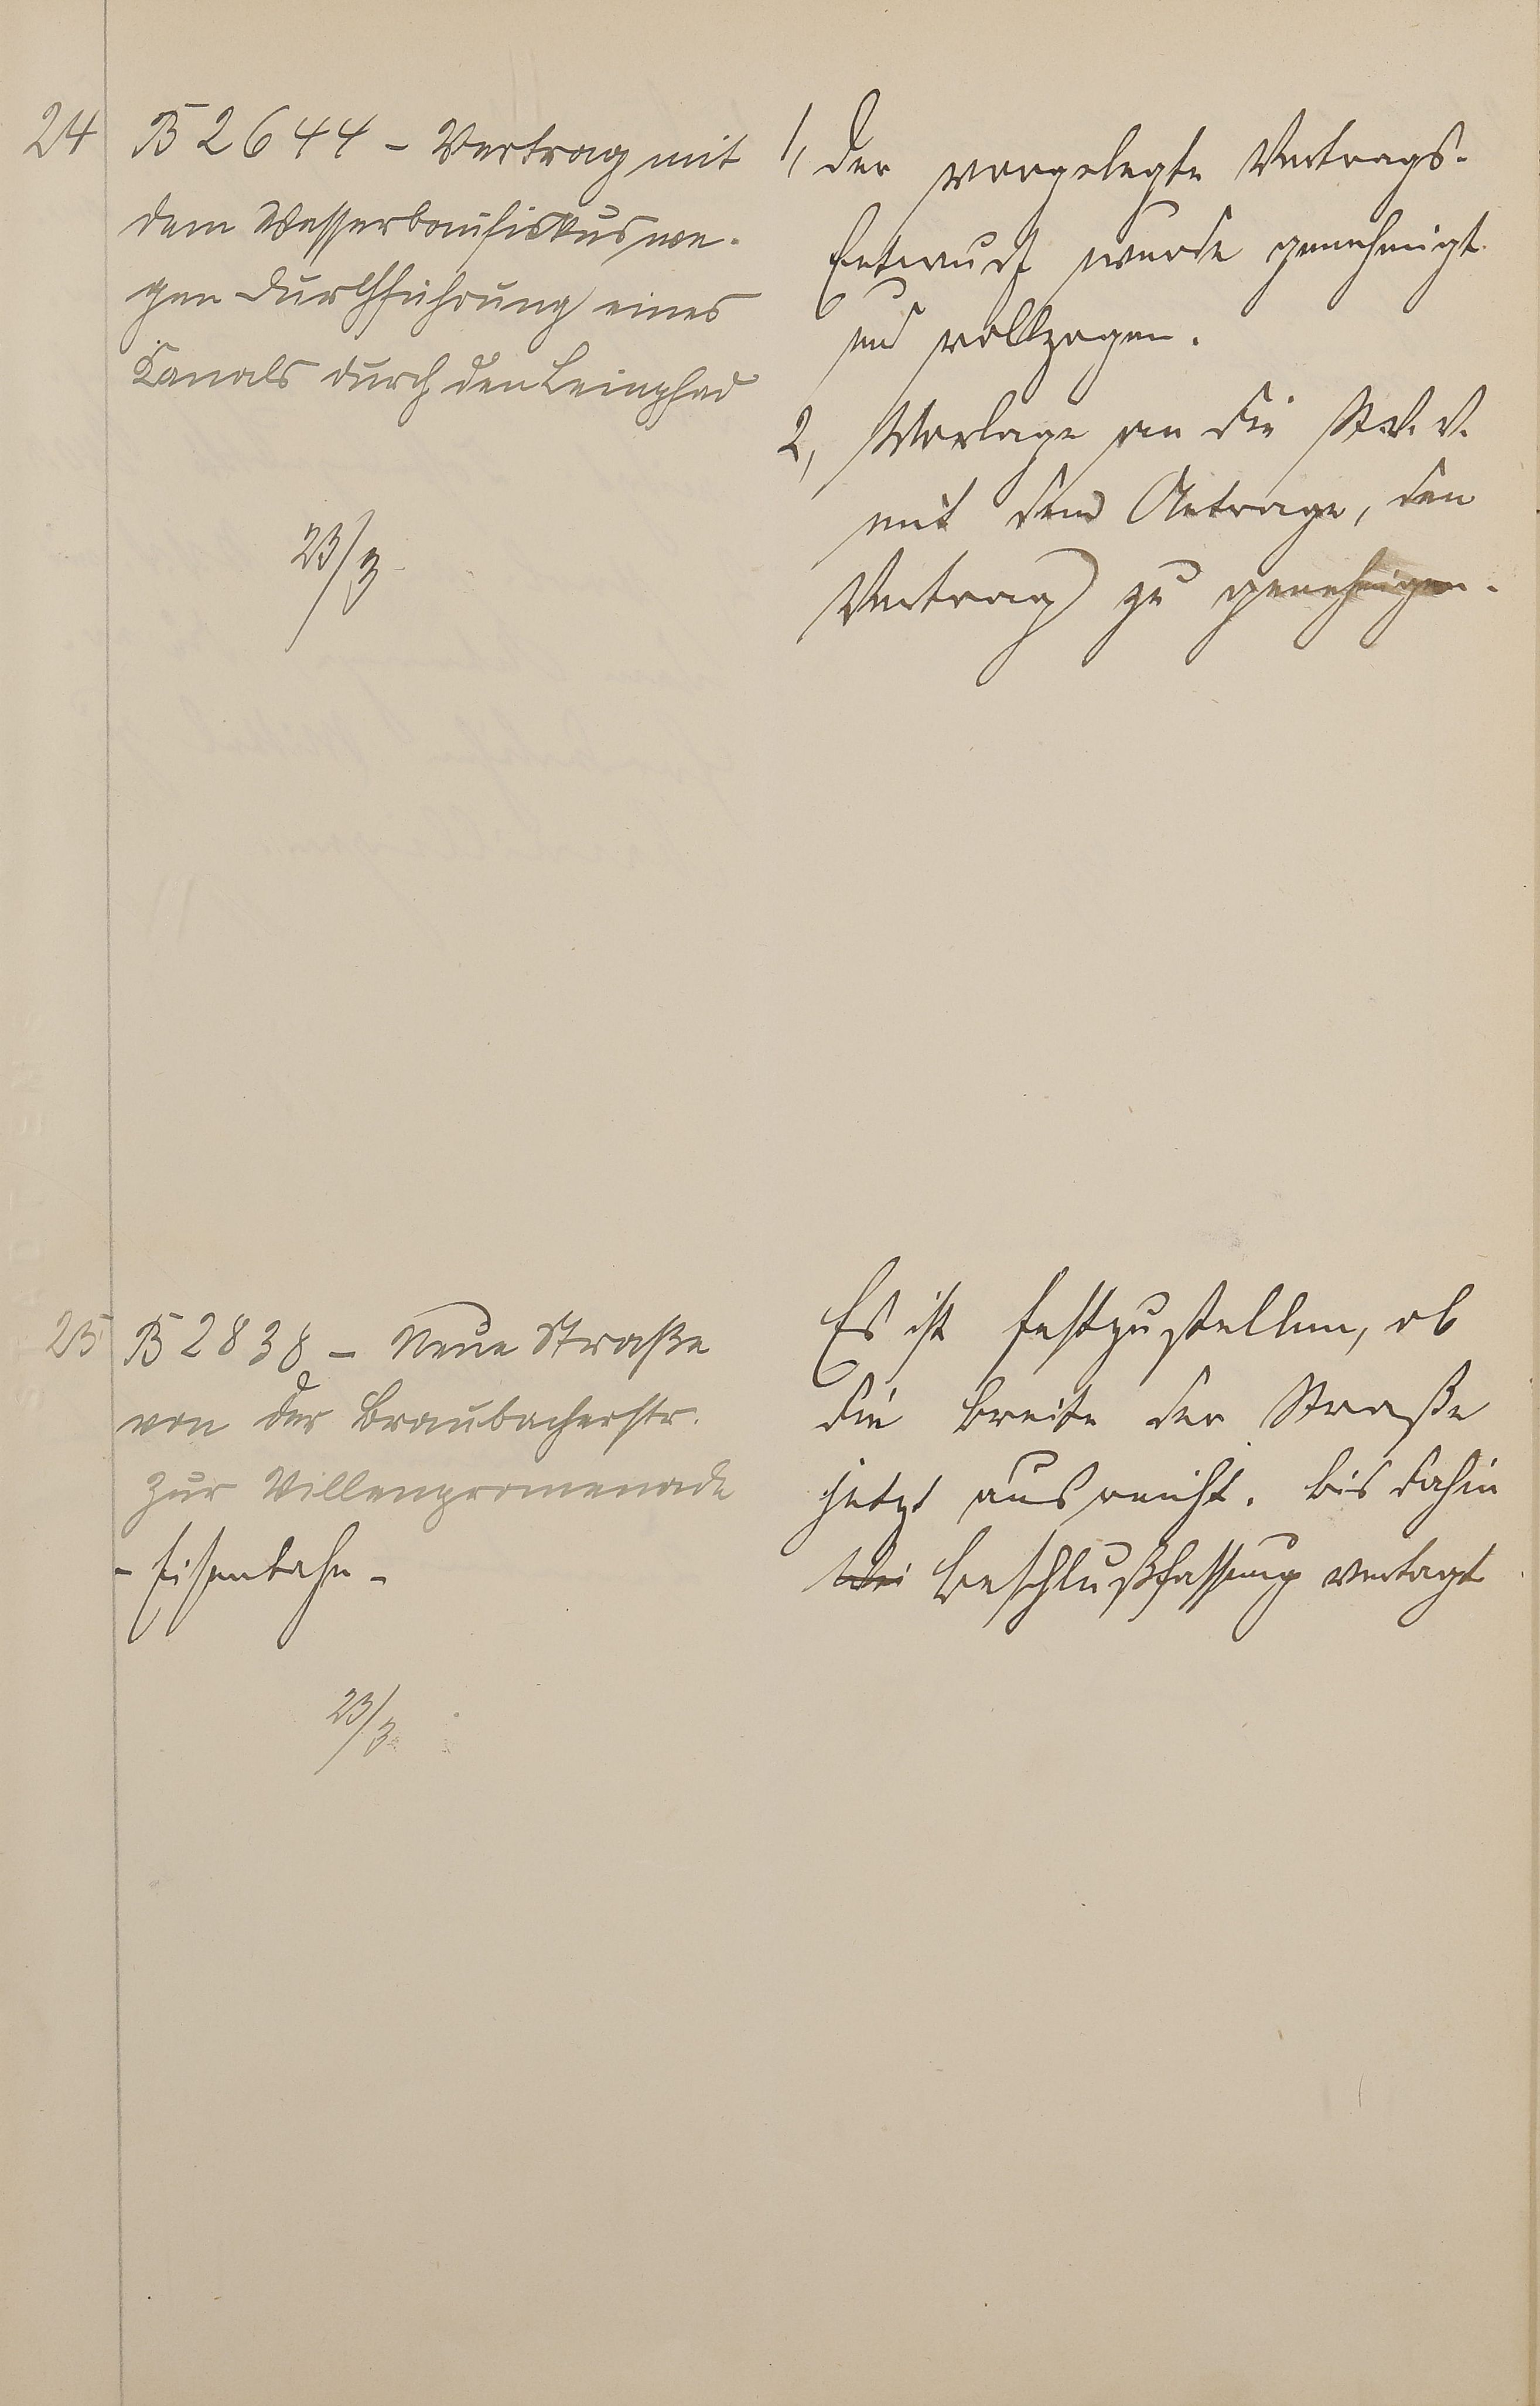 24
B 2644 - Vertrag mit
dem Wasserbaufiskus we-
gen Durchführung eines
Kanals durch den Leinpfad
23/3.
1, Der vorgelegte Vertrags-
Entwurf wurde genehmigt
und vollzogen.
2, Vorlage an die St. V. V.
mit dem Antrage, den
Vertrag zu genehmigen.
25
B 2838 - Neue Straße
von der Braubacherstr.
zur Villenpromenade
- Eisenbahn -
23/3.
Es ist festzustellen, ob
die Breite der Straße
jetzt ausreicht. Bis dahin
Beschlußfassung vertagt